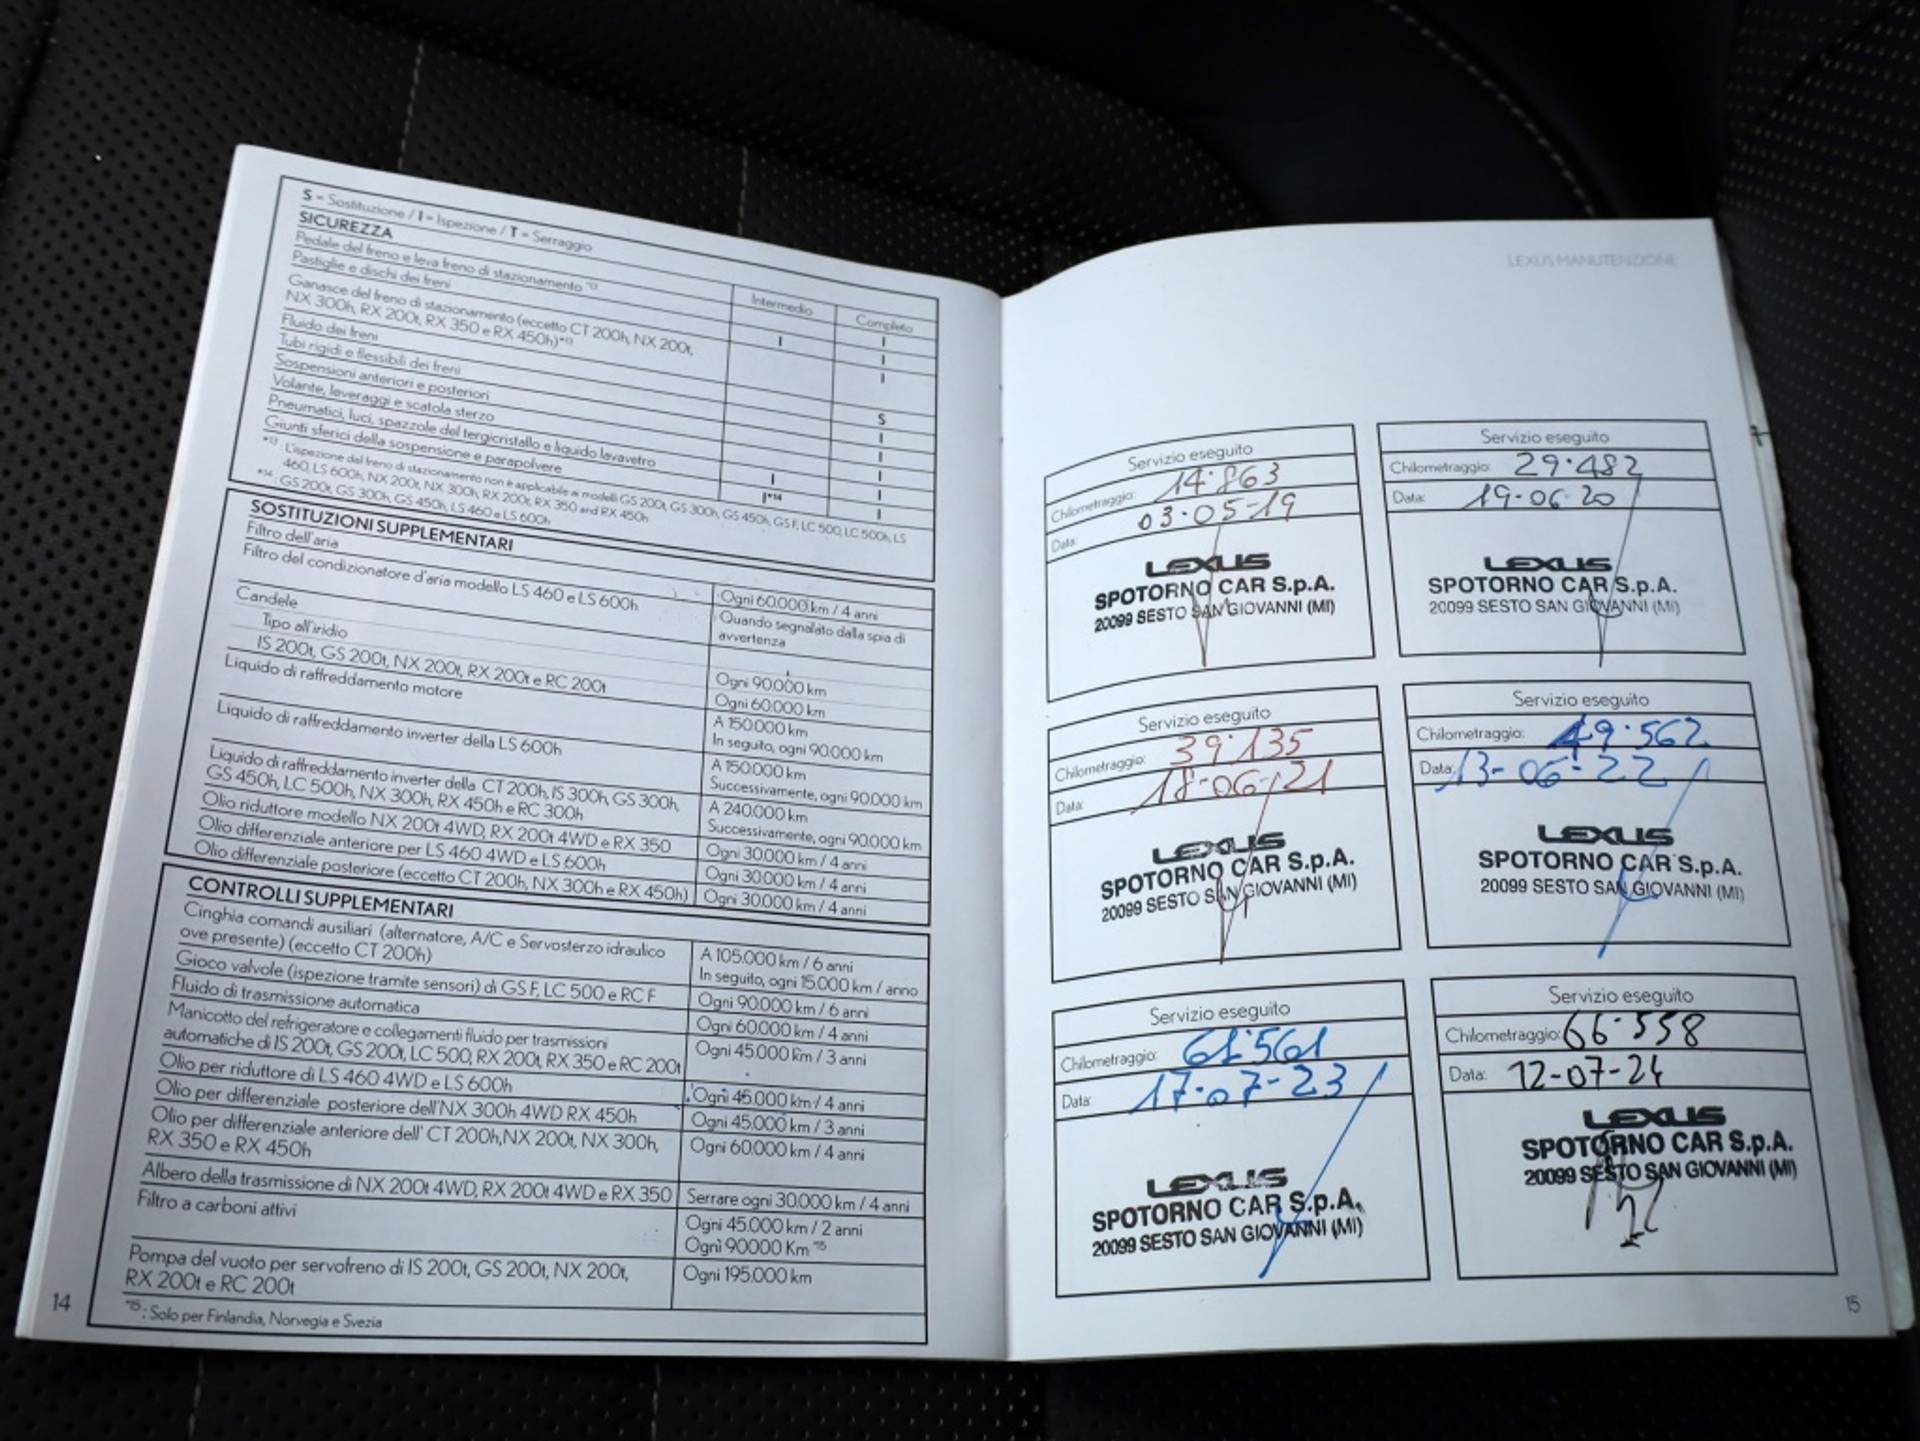 S = Sostituzione / I = Ispezione / T = Serraggio
SICUREZZA
Intermedio Completo
Pedale del freno e leva freno di stazionamento *13 I I
Pastiglie e dischi dei freni I
Ganasce del freno di stazionamento (eccetto CT 200h, NX 200t,
NX 300h, RX 200t, RX 350 e RX 450h)*13 I
Fluido dei freni S
Tubi rigidi e flessibili dei freni I
Sospensioni anteriori e posteriori I
Volante, leveraggi e scatola sterzo I
Pneumatici, luci, spazzole del tergicristallo e liquido lavavetro I I
Giunti sferici della sospensione e parapolvere I*14 I
*13 : L'ispezione del freno di stazionamento non è applicabile ai modelli GS 200t, GS 300h, GS 450h, GS F, LC 500, LC 500h, LS
460, LS 600h, NX 200t, NX 300h, RX 200t, RX 350 and RX 450h
*14 : GS 200t, GS 300h, GS 450h, LS 460 e LS 600h
SOSTITUZIONI SUPPLEMENTARI
Filtro dell'aria Ogni 60.000 km / 4 anni
Filtro del condizionatore d'aria modello LS 460 e LS 600h Quando segnalato dalla spia di
avvertenza
Candele
Tipo all'iridio Ogni 90.000 km
IS 200t, GS 200t, NX 200t, RX 200t e RC 200t Ogni 60.000 km
Liquido di raffreddamento motore A 150.000 km
In seguito, ogni 90.000 km
Liquido di raffreddamento inverter della LS 600h A 150.000 km
Successivamente, ogni 90.000 km
Liquido di raffreddamento inverter della CT 200h, IS 300h, GS 300h, A 240.000 km
GS 450h, LC 500h, NX 300h, RX 450h e RC 300h Successivamente, ogni 90.000 km
Olio riduttore modello NX 200t 4WD, RX 200t 4WD e RX 350 Ogni 30.000 km / 4 anni
Olio differenziale anteriore per LS 460 4WD e LS 600h Ogni 30.000 km / 4 anni
Olio differenziale posteriore (eccetto CT 200h, NX 300h e RX 450h) Ogni 30.000 km / 4 anni
CONTROLLI SUPPLEMENTARI
Cinghia comandi ausiliari (alternatore, A/C e Servosterzo idraulico A 105.000 km / 6 anni
ove presente) (eccetto CT 200h) In seguito, ogni 15.000 km / anno
Gioco valvole (ispezione tramite sensori) di GS F, LC 500 e RC F Ogni 90.000 km / 6 anni
Fluido di trasmissione automatica Ogni 60.000 km / 4 anni
Manicotto del refrigeratore e collegamenti fluido per trasmissioni Ogni 45.000 km / 3 anni
automatiche di IS 200t, GS 200t, LC 500, RX 200t, RX 350 e RC 200t
Olio per riduttore di LS 460 4WD e LS 600h Ogni 45.000 km / 4 anni
Olio per differenziale posteriore dell'NX 300h 4WD RX 450h Ogni 45.000 km / 3 anni
Olio per differenziale anteriore dell' CT 200h,NX 200t, NX 300h, Ogni 60.000 km / 4 anni
RX 350 e RX 450h
Albero della trasmissione di NX 200t 4WD, RX 200t 4WD e RX 350 Serrare ogni 30.000 km / 4 anni
Filtro a carboni attivi Ogni 45.000 km / 2 anni
Ogni 90000 Km *15
Pompa del vuoto per servofreno di IS 200t, GS 200t, NX 200t, Ogni 195.000 km
RX 200t e RC 200t
*15 : Solo per Finlandia, Norvegia e Svezia
14
LEXUS MANUTENZIONE
Servizio eseguito
Chilometraggio: 14.863
Data: 03-05-19
LEXUS
SPOTORNO CAR S.p.A.
20099 SESTO SAN GIOVANNI (MI)
Servizio eseguito
Chilometraggio: 29.482
Data: 19-06-20
LEXUS
SPOTORNO CAR S.p.A.
20099 SESTO SAN GIOVANNI (MI)
Servizio eseguito
Chilometraggio: 39.135
Data: 18-06-21
LEXUS
SPOTORNO CAR S.p.A.
20099 SESTO SAN GIOVANNI (MI)
Servizio eseguito
Chilometraggio: 49.562
Data: 13-06-22
LEXUS
SPOTORNO CAR S.p.A.
20099 SESTO SAN GIOVANNI (MI)
Servizio eseguito
Chilometraggio: 61.561
Data: 17-07-23
LEXUS
SPOTORNO CAR S.p.A.
20099 SESTO SAN GIOVANNI (MI)
Servizio eseguito
Chilometraggio: 66.558
Data: 12-07-24
LEXUS
SPOTORNO CAR S.p.A.
20099 SESTO SAN GIOVANNI (MI)
15